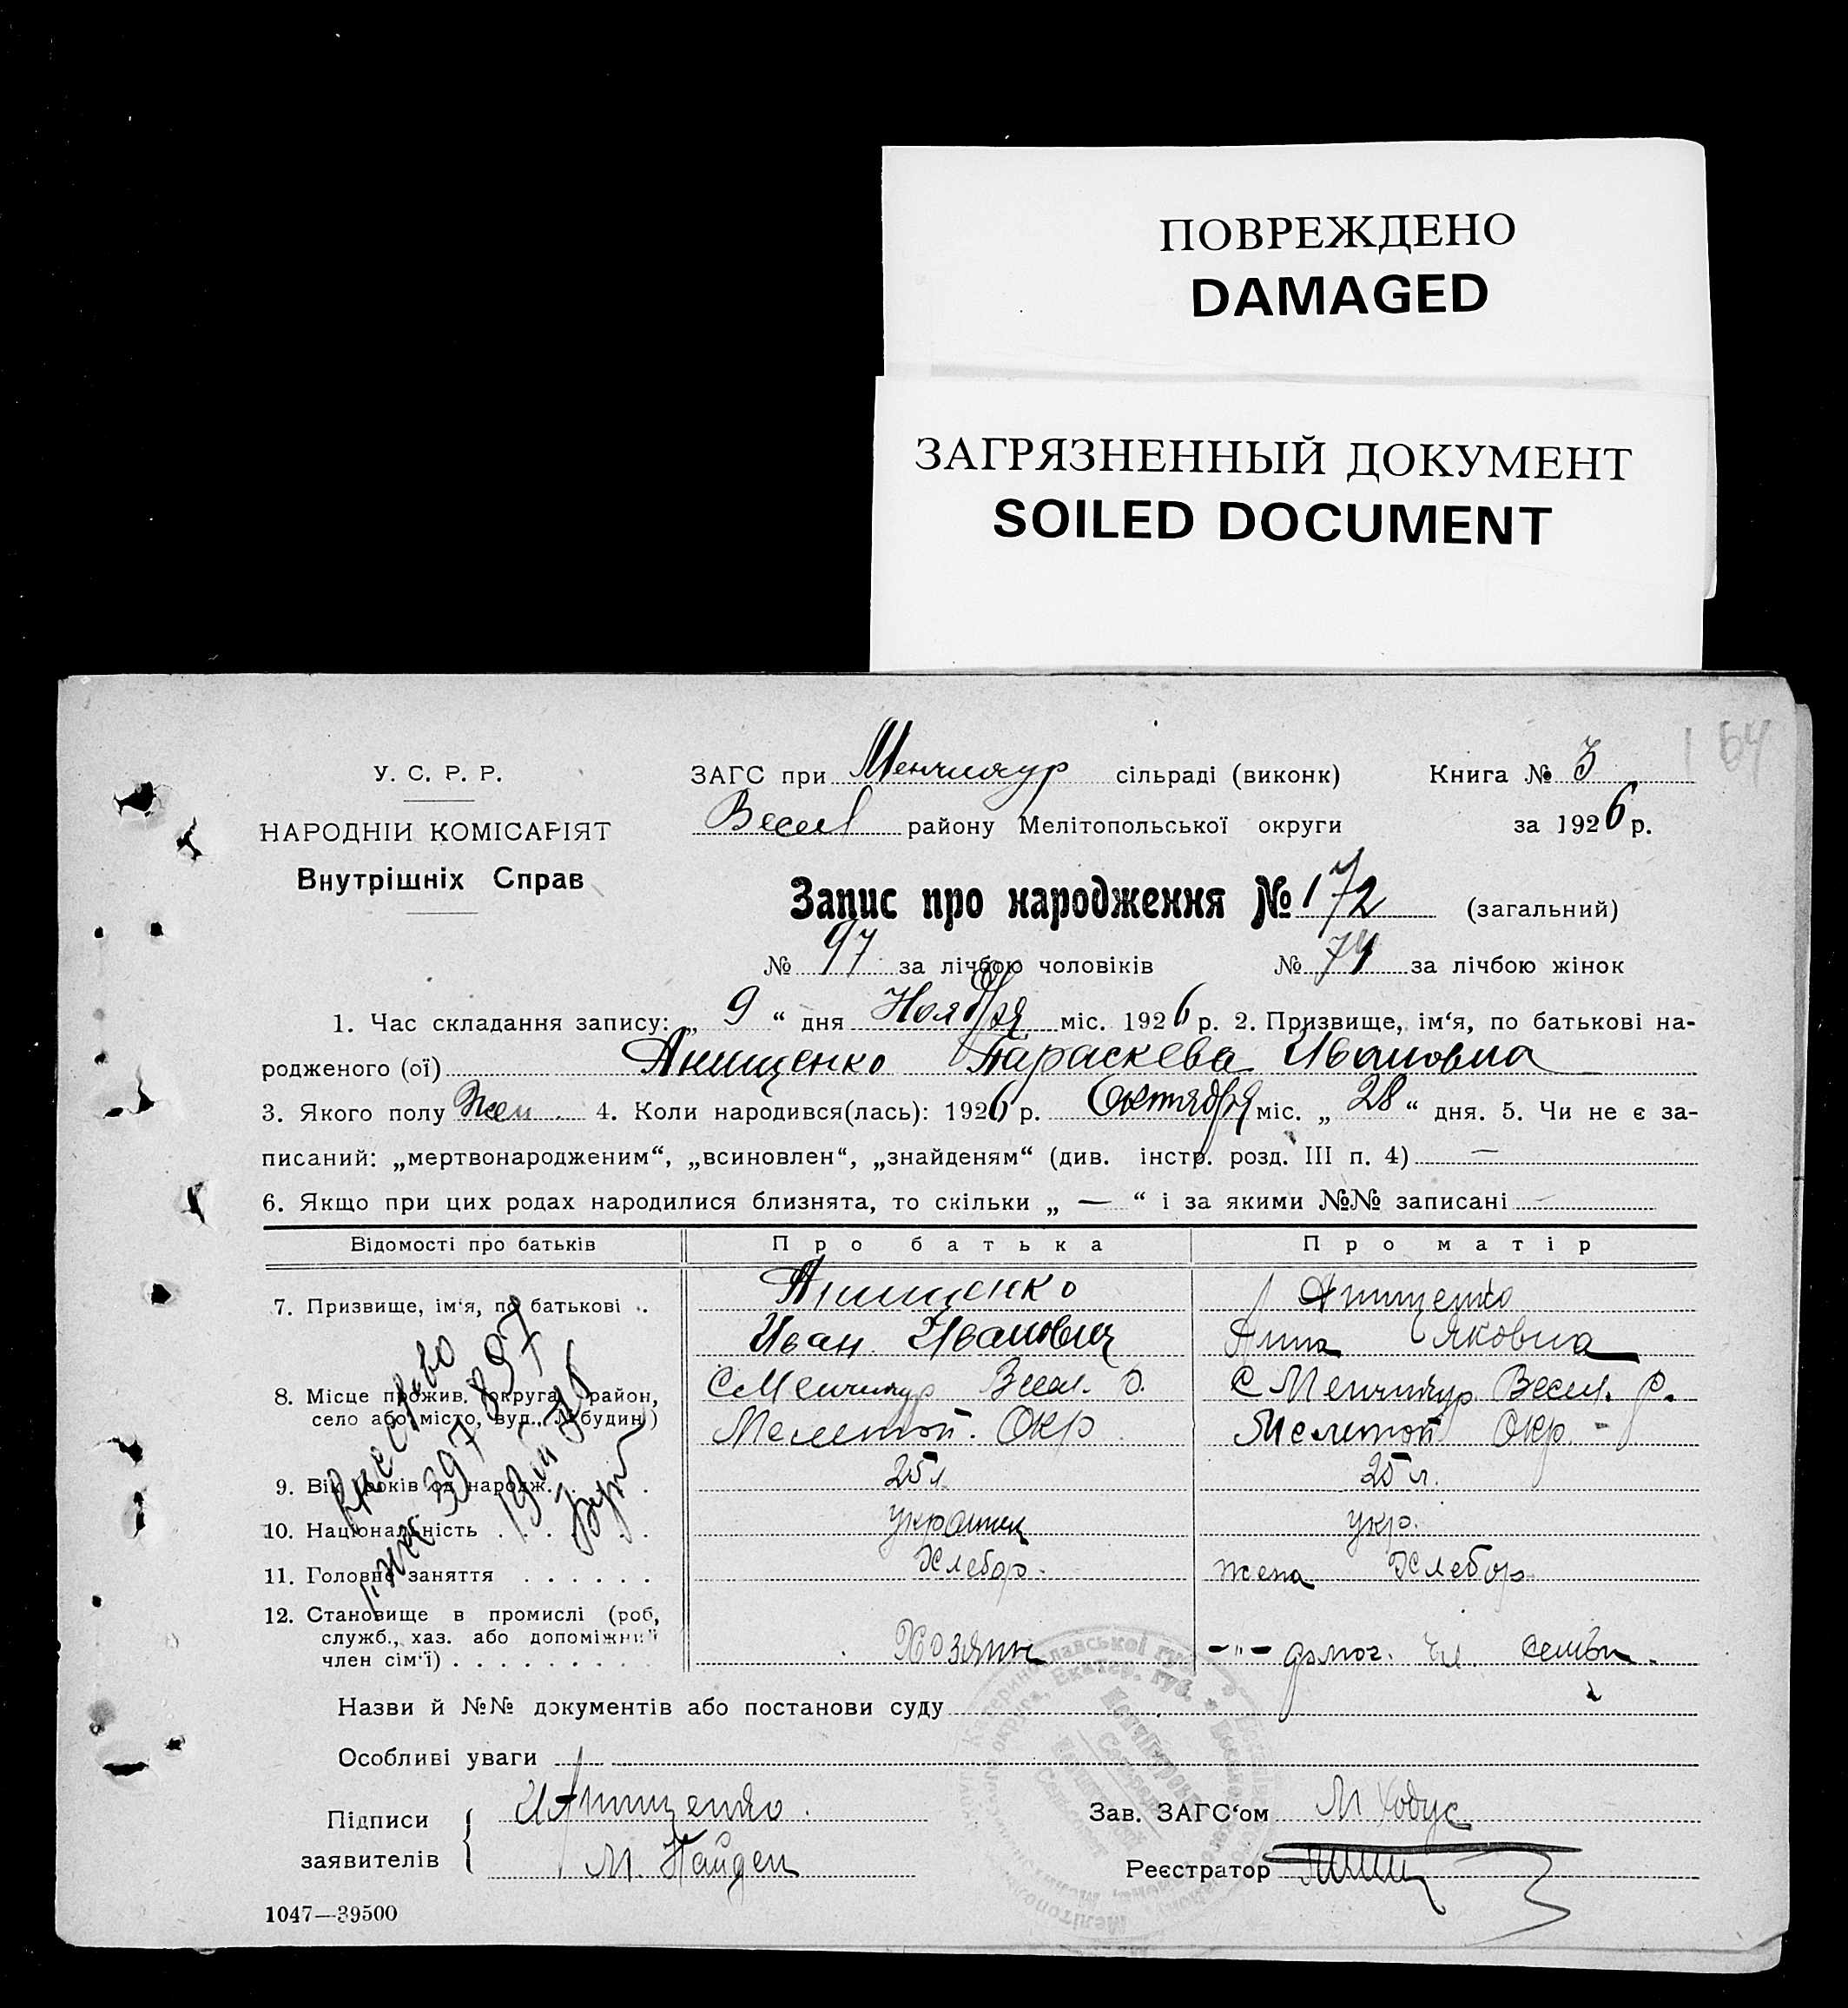 ПОВРЕЖДЕНО
DAMAGED
ЗАГРЯЗНЕННЫЙ ДОКУМЕНТ
SOILED DOCUMENT
164
У. С. Р. Р.
НАРОДНІЙ КОМІСАРІЯТ
Внутрішніх Справ
ЗАГС при Менчикур сільраді (виконк) Книга № 3
Весел району Мелітопольської округи за 1926 р.
Запис про народження № 172 (загальний)
№ 97 за лічбою чоловіків № 74 за лічбою жінок
1. Час складання запису: „ 9 “ дня Ноября міс. 1926 р. 2. Призвище, ім‘я, по батькові на-
родженого (ої) Анищенко Параскева Ивановна
3. Якого полу Жен. 4. Коли народився(лась): 1926 р. Октября міс. „ 28 “ дня. 5. Чи не є за-
писаний: „мертвонародженим“, „всиновлен“, „знайденям“ (див. інстр. розд. III п. 4) —
6. Якщо при цих родах народилися близнята, то скільки „ — “ і за якими №№ записані —
Відомості про батьків Про батька Про матір
7. Призвище, ім‘я, по батькові . . Анищенко Анищенко
Иван Иванович Анна Яковна
8. Місце прожив. (округа, район, С Менчикур Весел. р. С Менчикур Весел. р.
село або місто, вуд., № будин.) Мелитоп. Окр Мелитоп Окр.
9. Вік (років од народж. . . . 25 л. 25 л.
10. Національність . . . . . украинец укр.
11. Головне заняття . . . . . . Хлебор. жена Хлебор.
12. Становище в промислі (роб,
служб., хаз. або допоміжний
член сім‘ї) . . . . . . . . . Хозяин -"- домог. чл. семьи.
397 897
Назви й №№ документів або постанови суду
Особливі уваги
Підписи И Анищенко. Зав. ЗАГС‘ом М Ходус
заявителів М. Найден Реєстратор
1047—39500